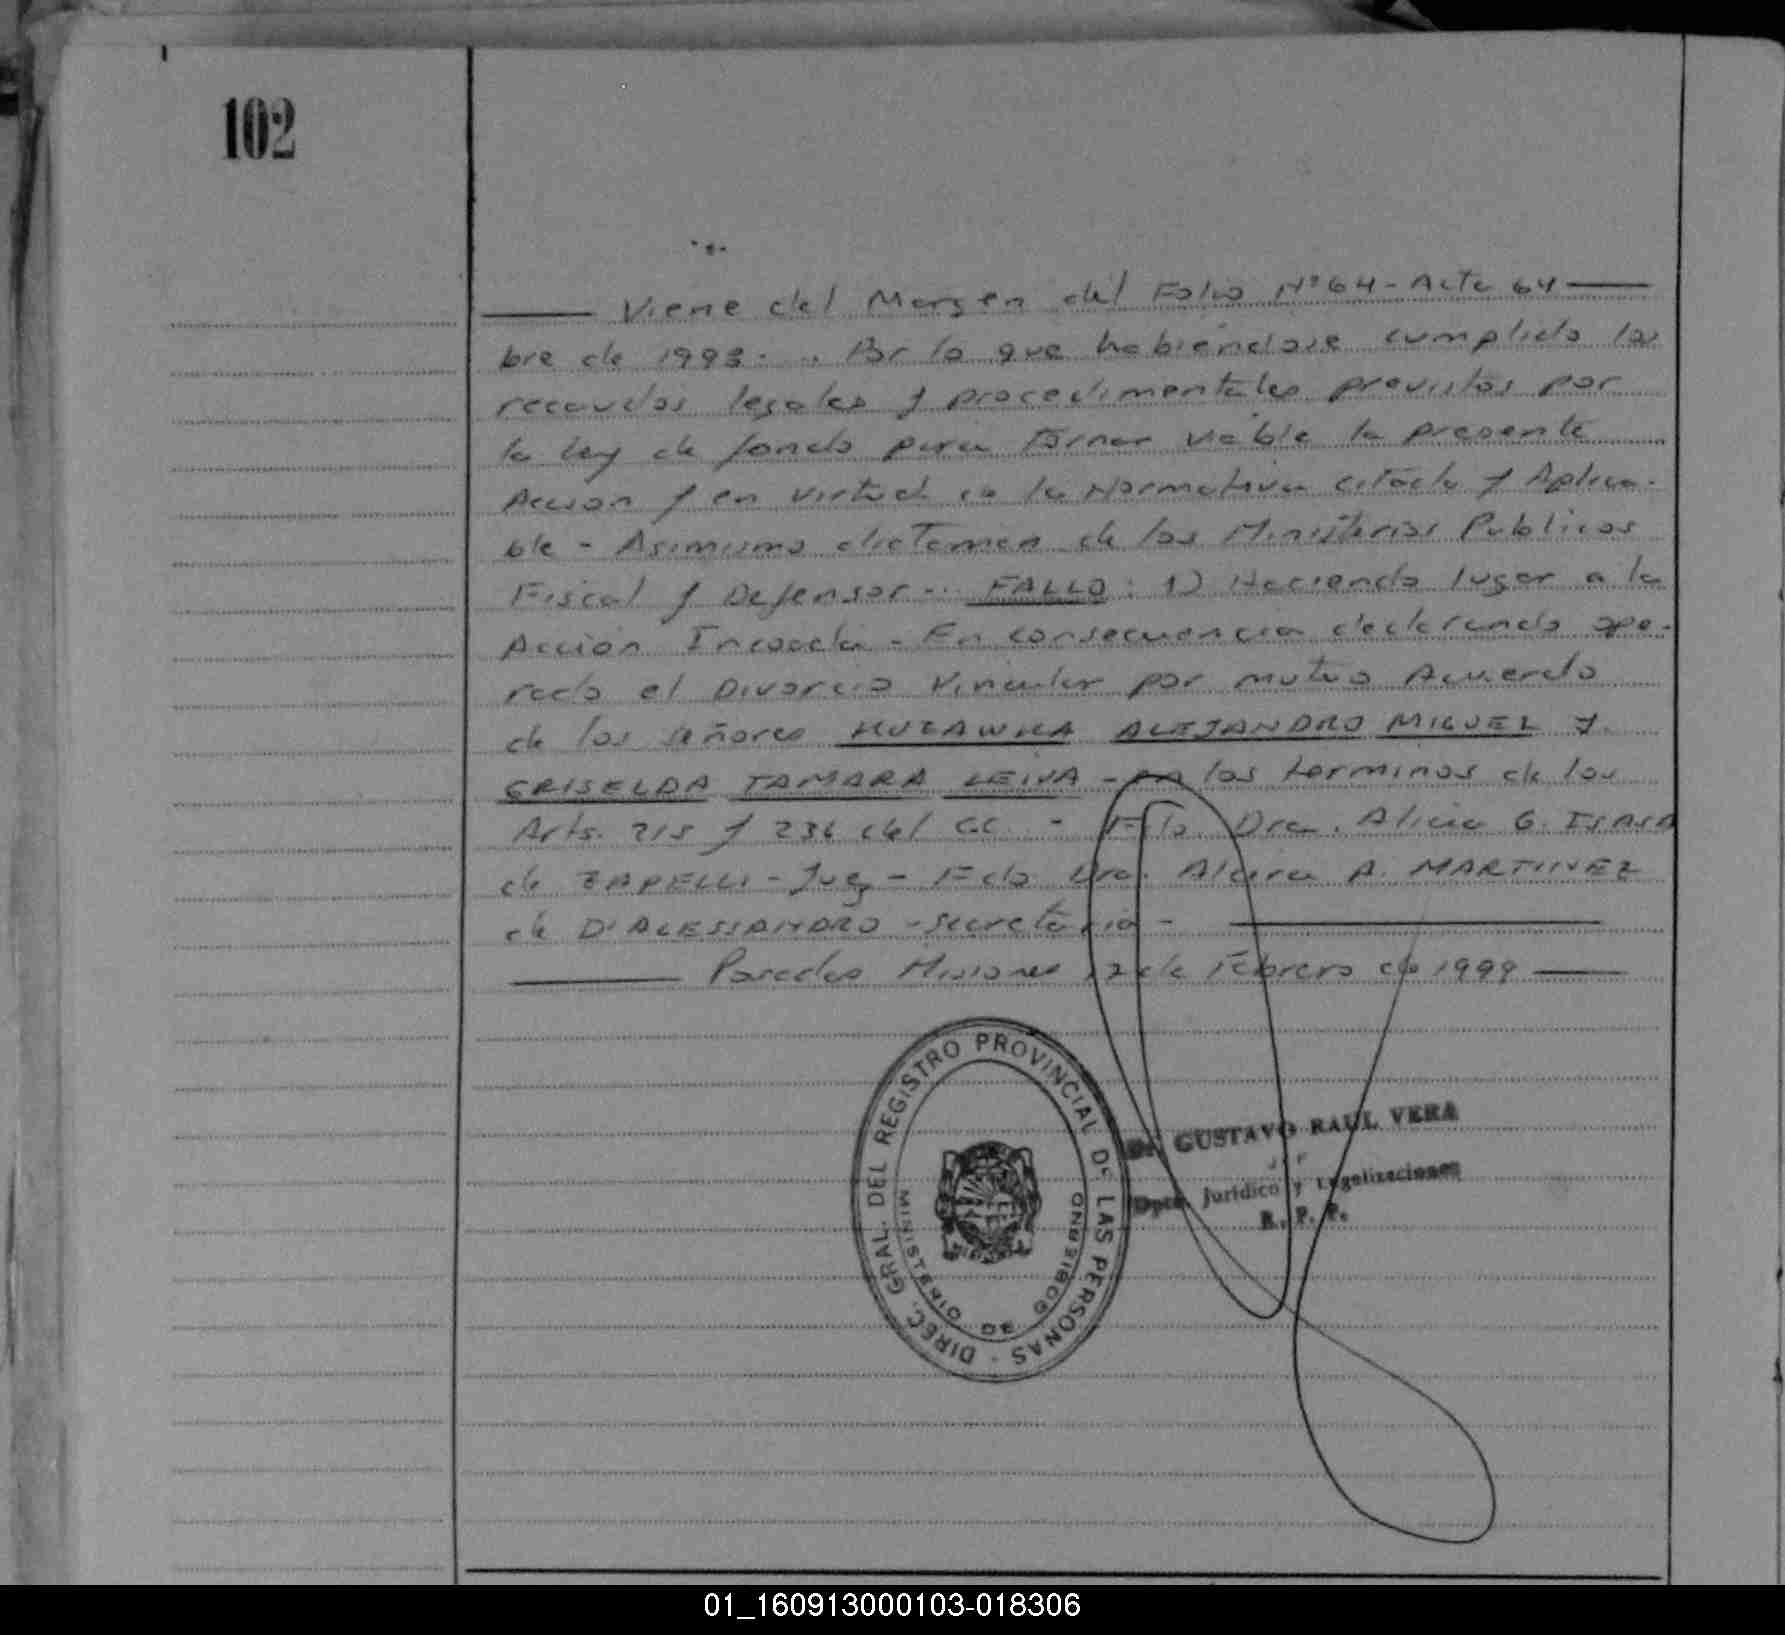 102
Viene del Margen del Folio Nº 64 - Acta 64
bre de 1998. . Por lo que habiéndose cumplido los
recaudos legales y procedimentales previstos por
la ley de fondo para tornar viable la presente
Accion y en virtud de la Normativa citada y Aplica-
ble - Asimismo dictamen de los Ministerios Publicos
Fiscal y Defensor -. FALLO : 1) Haciendo lugar a la
Acción Incoada - En consecuencia declarando ope-
rado el Divorcio Vincular por mutuo Acuerdo
de los señores ALEJANDRO MIGUEL y
GRISELDA TAMARA LEIVA - en los terminos de los
Arts. 215 y 236 del CC. - Fdo. Dra. Alicia G.
de ZAPELLI - Juez - Fdo Dra. Alcira A. MARTINEZ
de D'ALESSANDRO - secretaria -
Posadas Misiones 12 de Febrero de 1999
DIREC. GRAL. DEL REGISTRO PROVINCIAL DE LAS PERSONAS -
MINISTERIO DE GOBIERNO
Dr. GUSTAVO RAUL VERA
Dpto. Jurídico y Legalizaciones
R. P. P.
01_160913000103-018306